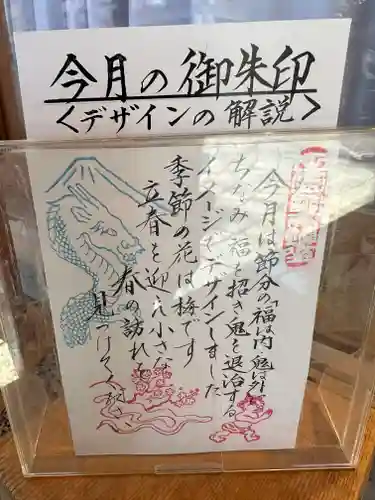 今月の御朱印
<デザインの解説>
今月は節分の「福は内 鬼は外」
ちなみ 福を招き鬼を退治する
イメージでデザインしました
季節の花は梅です
立春を迎え小さな
春の訪れ
見つけてください